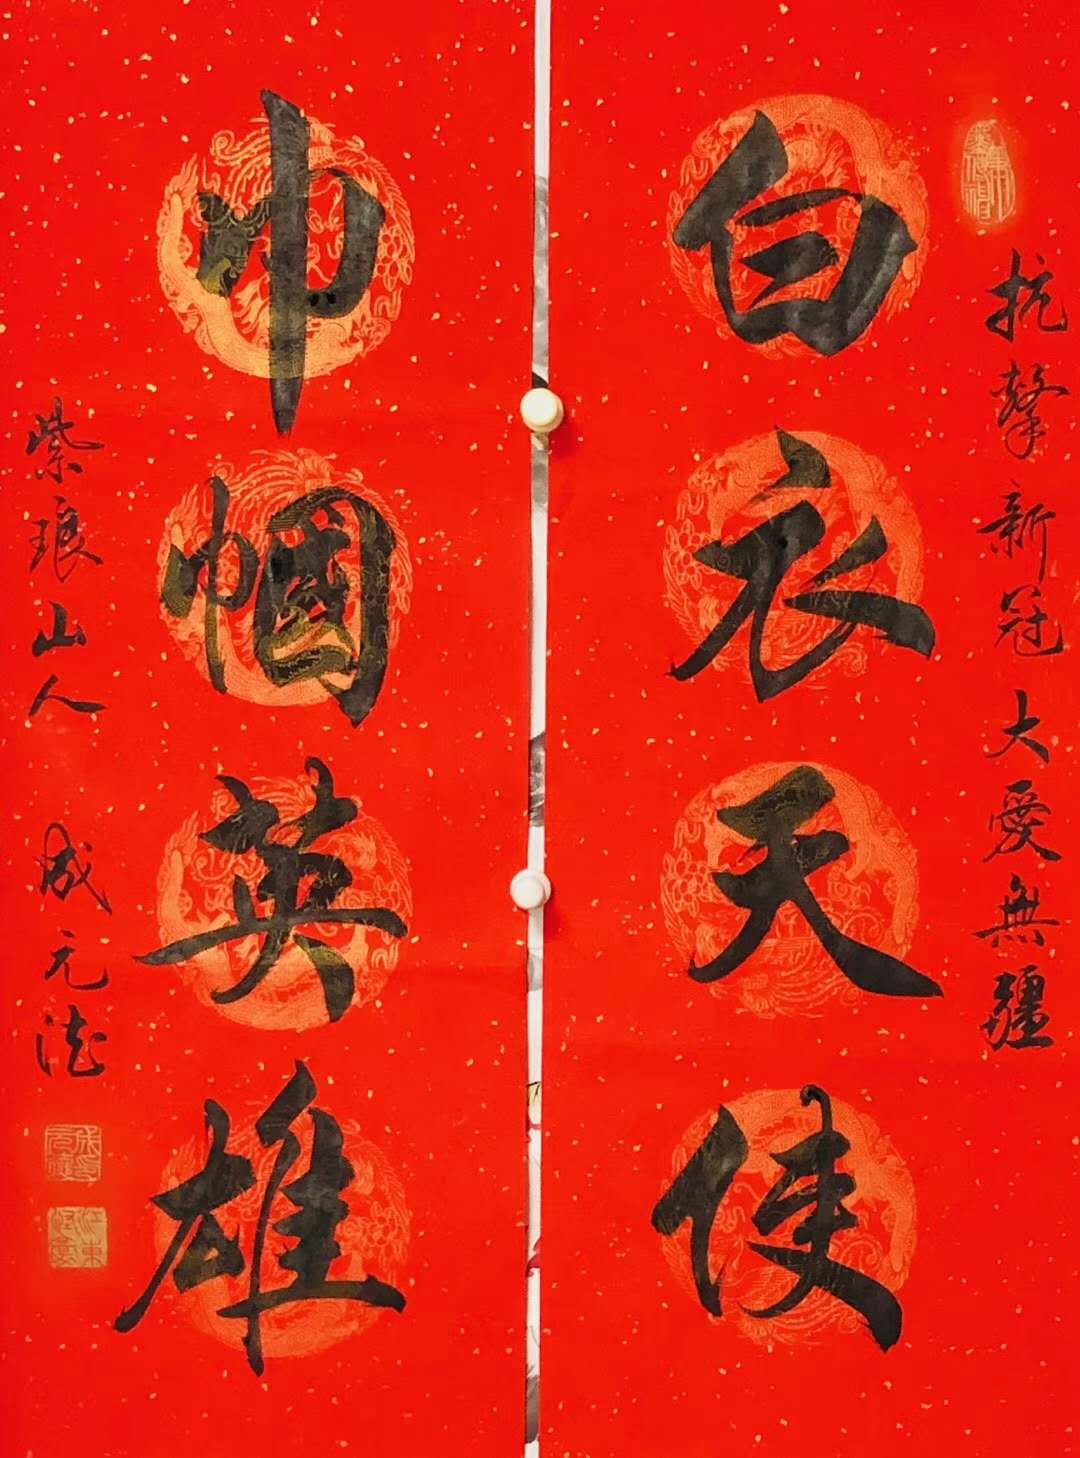 抗擊新冠大愛無疆
白衣天使
巾帼英雄
紫琅山人 成元